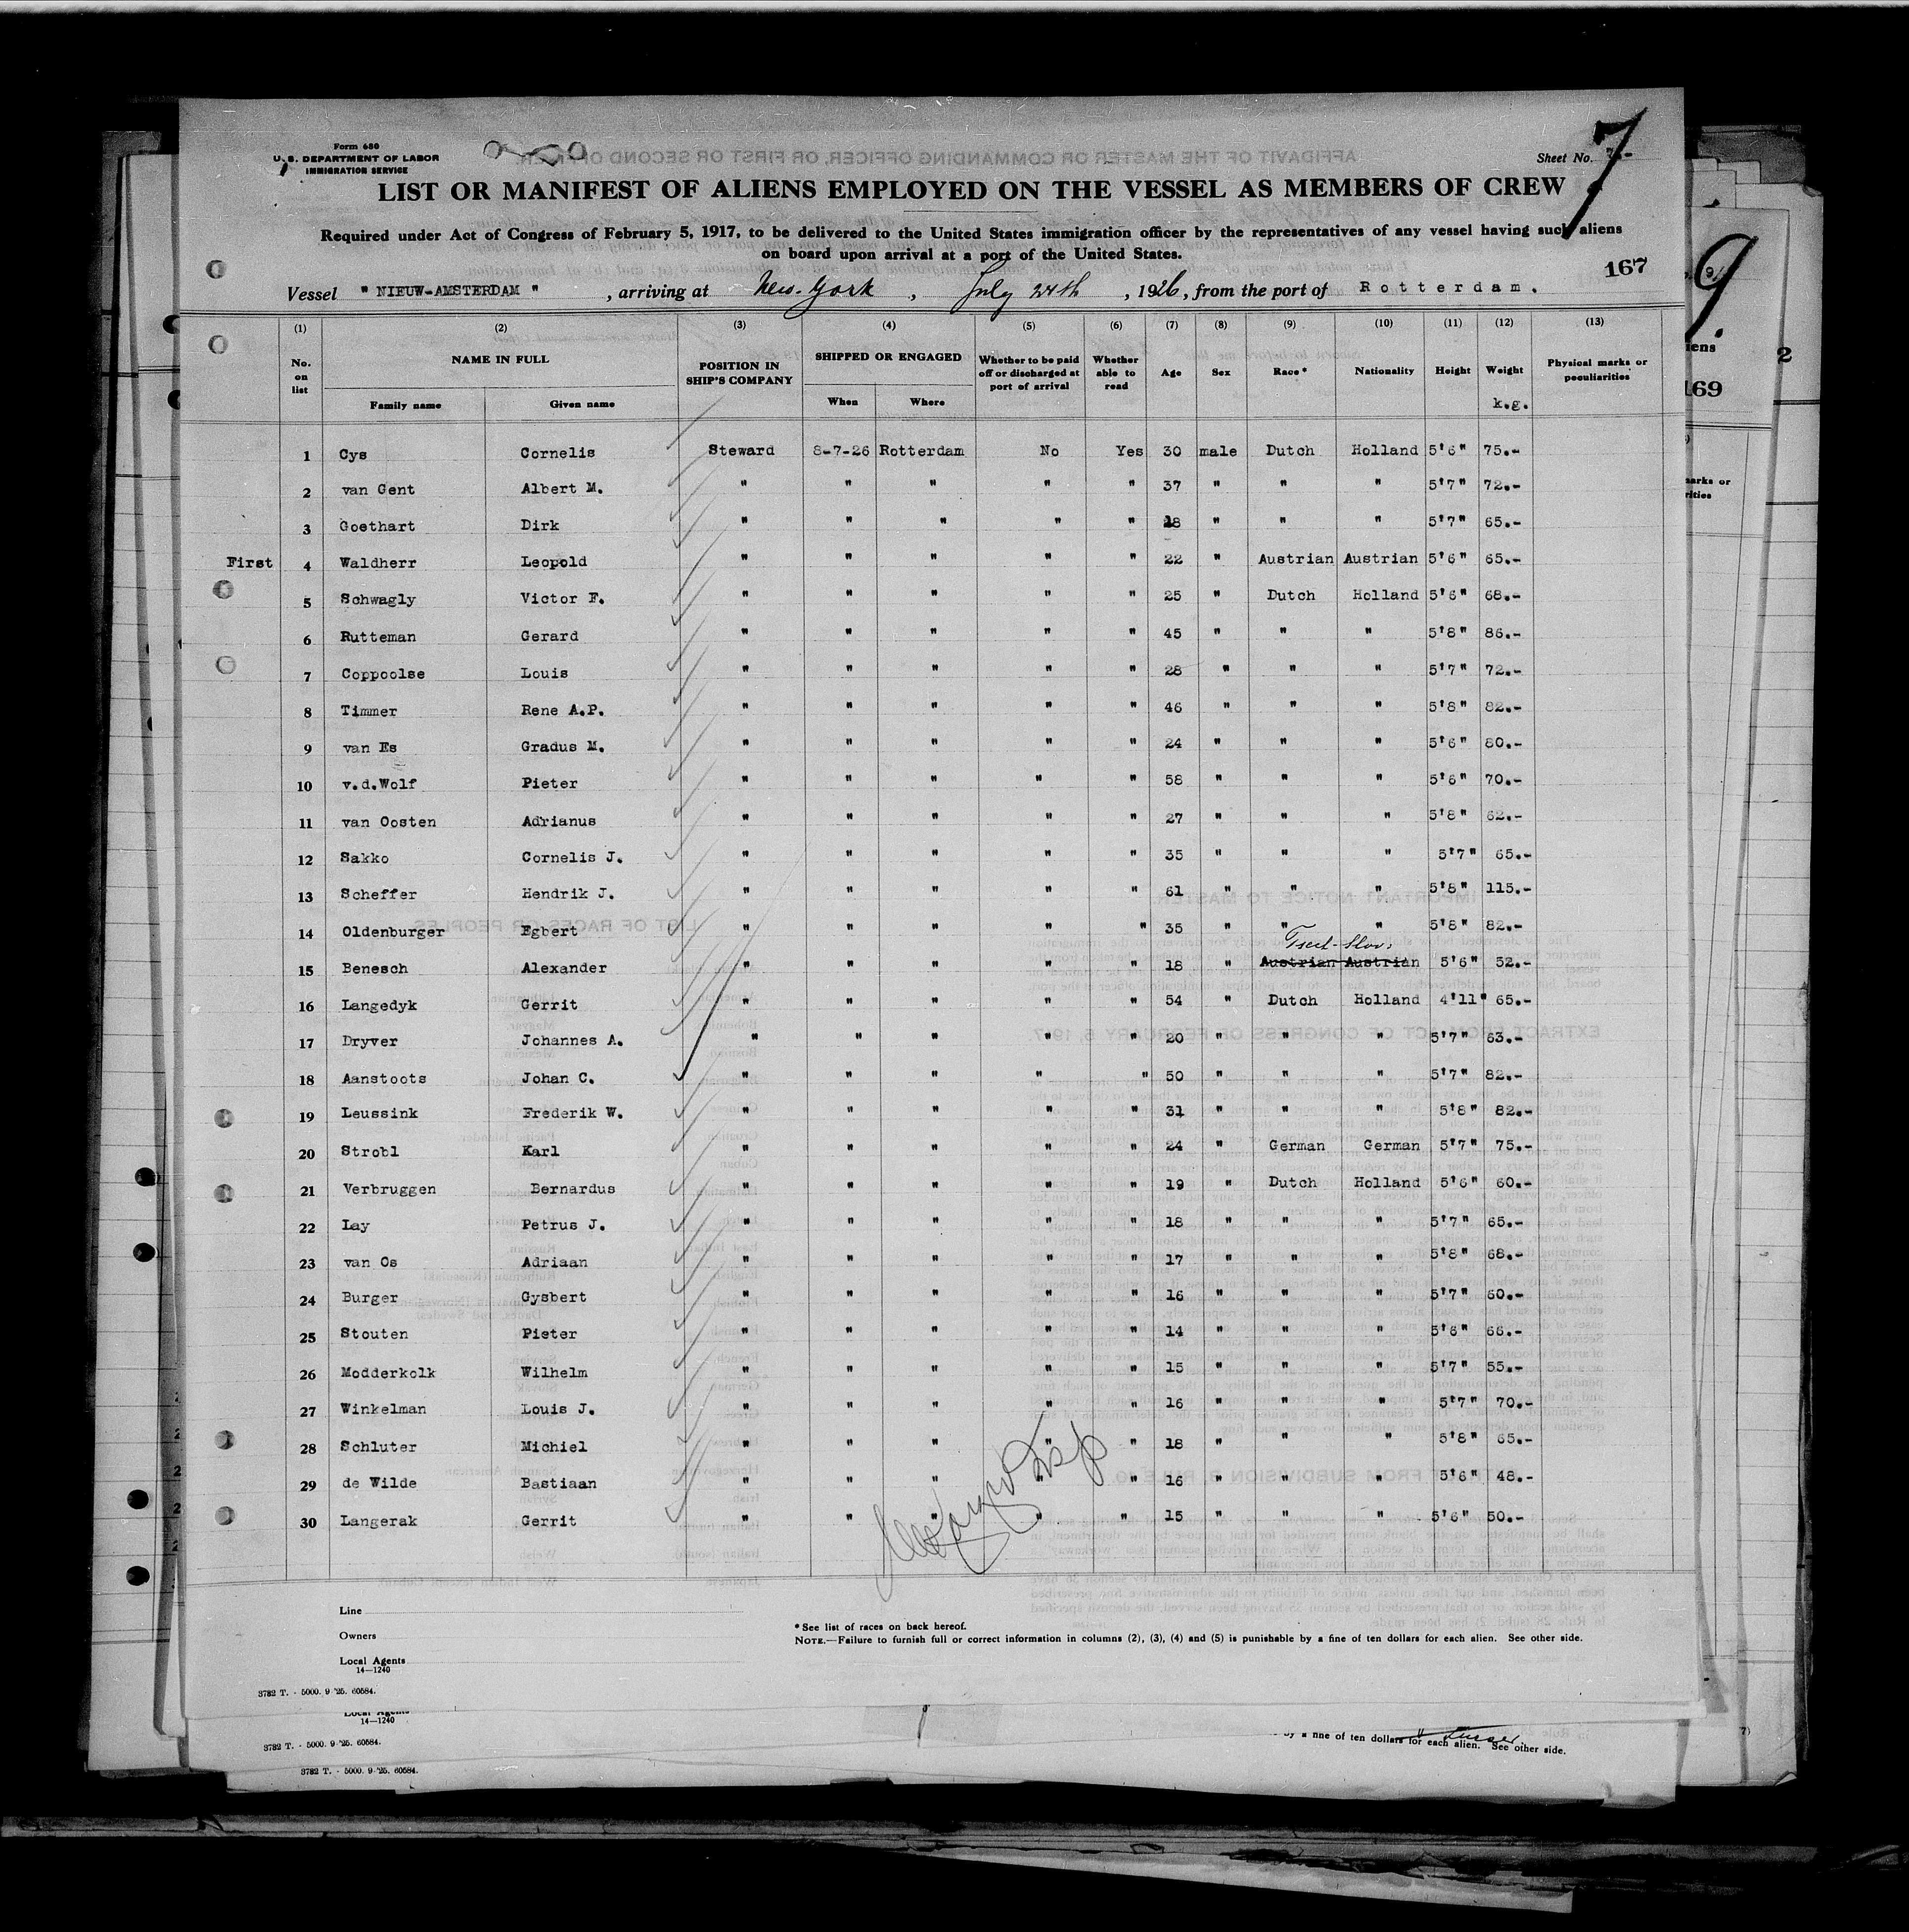 Form 680
U. S. DEPARTMENT OF LABOR
IMMIGRATION SERVICE
Sheet No. 7
LIST OR MANIFEST OF ALIENS EMPLOYED ON THE VESSEL AS MEMBERS OF CREW
Required under Act of Congress of February 5, 1917, to be delivered to the United States immigration officer by the representatives of any vessel having such aliens
on board upon arrival at a port of the United States.
167
Vessel " NIEUW-AMSTERDAM " , arriving at New-York , July 24th , 1926, from the port of Rotterdam.
(1) (2) (3) (4) (5) (6) (7) (8) (9) (10) (11) (12) (13)
No. on list NAME IN FULL Family name Given name POSITION IN SHIP'S COMPANY SHIPPED OR ENGAGED When Where Whether to be paid off or discharged at port of arrival Whether able to read Age Sex Race* Nationality Height Weight k.g. Physical marks or peculiarities
1 Cys Cornelis Steward 8-7-26 Rotterdam No Yes 30 male Dutch Holland 5'6" 75.-
2 van Gent Albert M. " " " " " 37 " " " 5'7" 72.-
3 Goethart Dirk " " " " " 18 " " " 5'7" 65.-
First 4 Waldherr Leopold " " " " " 22 " Austrian Austrian 5'6" 65.-
5 Schwagly Victor F. " " " " " 25 " Dutch Holland 5'6" 68.-
6 Rutteman Gerard " " " " " 45 " " " 5'8" 86.-
7 Coppoolse Louis " " " " " 28 " " " 5'7" 72.-
8 Timmer Rene A.P. " " " " " 46 " " " 5'8" 82.-
9 van Es Gradus M. " " " " " 24 " " " 5'6" 80.-
10 v.d.Wolf Pieter " " " " " 58 " " " 5'6" 70.-
11 van Oosten Adrianus " " " " " 27 " " " 5'8" 62.-
12 Sakko Cornelis J. " " " " " 35 " " " 5'7" 65.-
13 Scheffer Hendrik J. " " " " " 61 " " " 5'8" 115.-
14 Oldenburger Egbert " " " " " 35 " " " 5'8" 82.-
Tsech-Slov.
15 Benesch Alexander " " " " " 18 " Austrian Austrian 5'6" 52.-
16 Langedyk Gerrit " " " " " 54 " Dutch Holland 4'11" 65.-
17 Dryver Johannes A. " " " " " 20 " " " 5'7" 63.-
18 Aanstoots Johan C. " " " " " 50 " " " 5'7" 82.-
19 Leussink Frederik W. " " " " " 31 " " " 5'8" 82.-
20 Strobl Karl " " " " " 24 " German German 5'7" 75.-
21 Verbruggen Bernardus " " " " " 19 " Dutch Holland 5'6" 60.-
22 Lay Petrus J. " " " " " 18 " " " 5'7" 65.-
23 van Os Adriaan " " " " " 17 " " " 5'8" 68.-
24 Burger Gysbert " " " " " 16 " " " 5'7" 60.-
25 Stouten Pieter " " " " " 14 " " " 5'6" 66.-
26 Modderkolk Wilhelm " " " " " 15 " " " 5'7" 55.-
27 Winkelman Louis J. " " " " " 16 " " " 5'7" 70.-
28 Schluter Michiel " " " " " 18 " " " 5'8" 65.-
29 de Wilde Bastiaan " " " " " 16 " " " 5'6" 48.-
30 Langerak Gerrit " " " " " 15 " " " 5'6" 50.-
Line
Owners
Local Agents
14—1240
* See list of races on back hereof.
NOTE.—Failure to furnish full or correct information in columns (2), (3), (4) and (5) is punishable by a fine of ten dollars for each alien. See other side.
3782 T. - 5000. 9-'25. 60584.
Local Agents
14—1240
3782 T. - 5000. 9-'25. 60584.
by a fine of ten dollars for each alien. See other side.
3782 T. - 5000. 9-'25. 60584.
9
iens
169
2